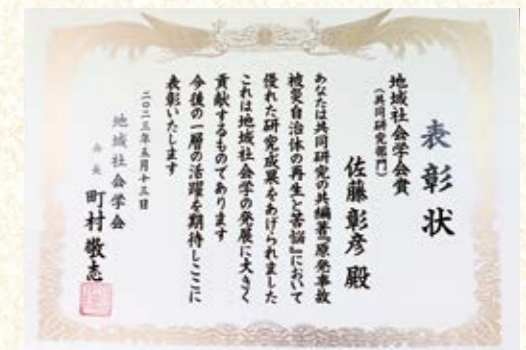 表彰状
地域社会学会賞
（共同研究部門）
佐藤彰彦 殿
あなたは共同研究の共編著『原発事故
被災自治体の再生と苦悩』において
優れた研究成果をあげられました
これは地域社会学の発展に大きく
貢献するものであります
今後の一層の活躍を期待しここに
表彰いたします
二〇二三年五月十三日
地域社会学会
会長 町村敬志